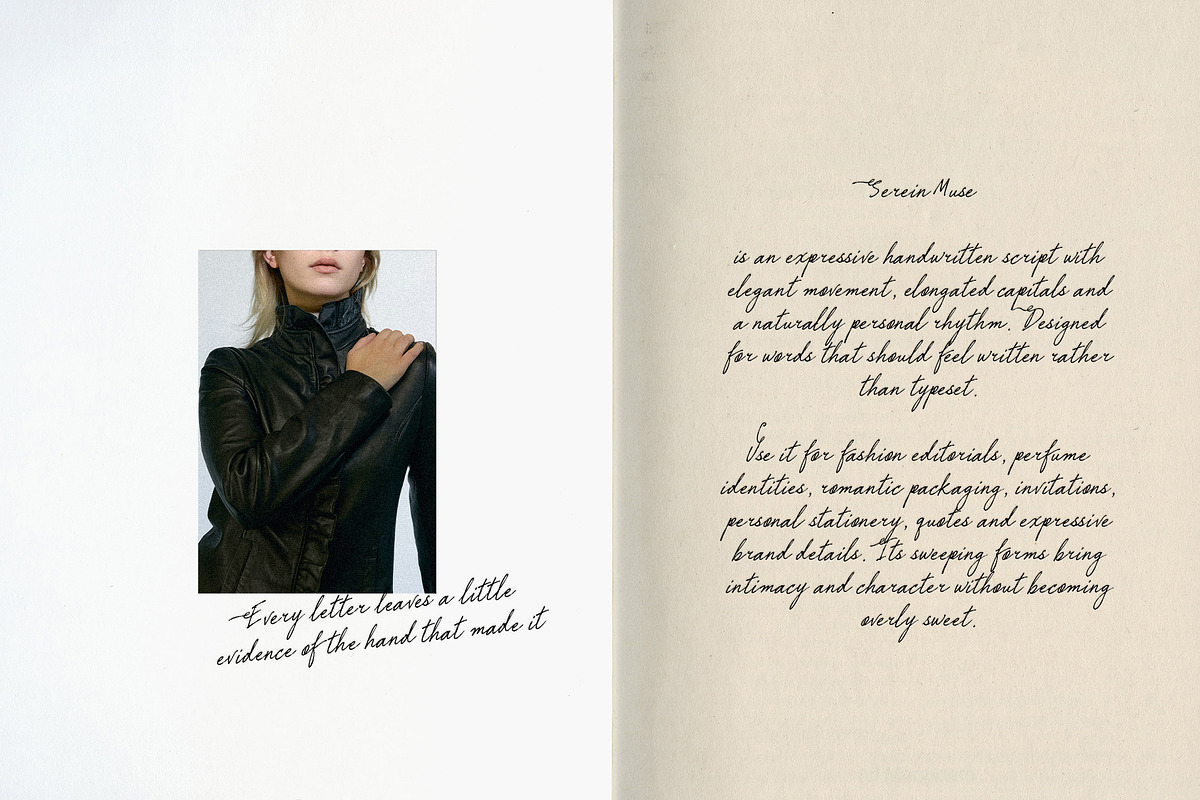 Every letter leaves a little
evidence of the hand that made it
Serein Muse
is an expressive handwritten script with
elegant movement, elongated capitals and
a naturally personal rhythm. Designed
for words that should feel written rather
than typeset.
Use it for fashion editorials, perfume
identities, romantic packaging, invitations,
personal stationery, quotes and expressive
brand details. Its sweeping forms bring
intimacy and character without becoming
overly sweet.